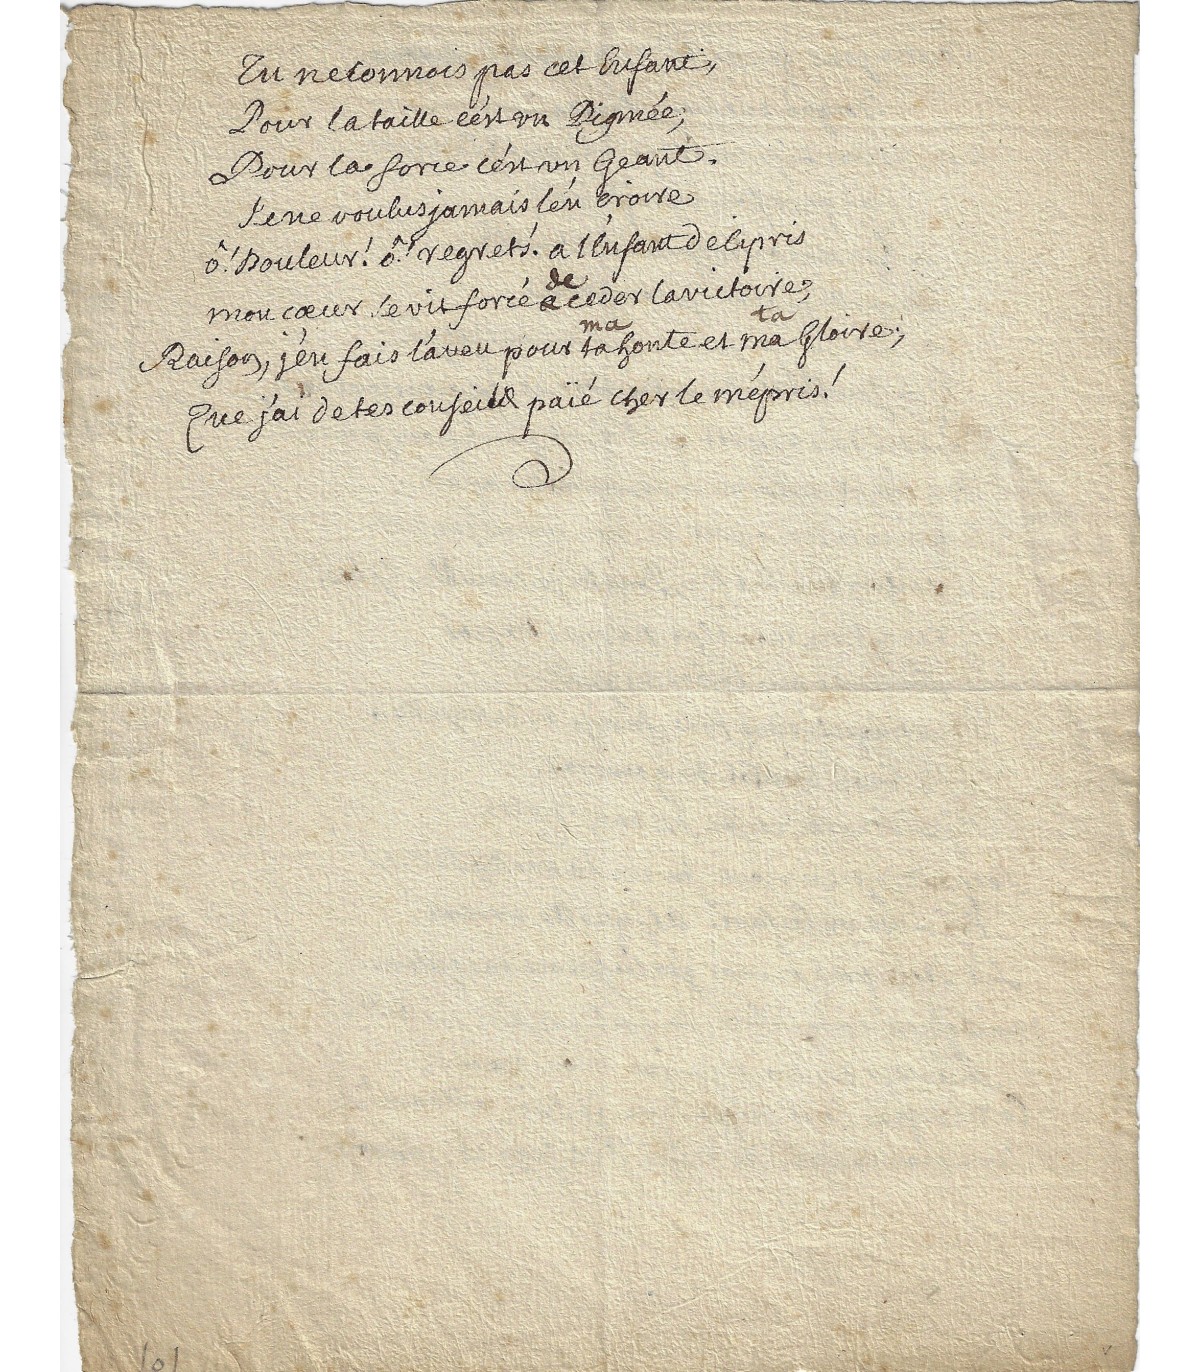 Tu ne connois pas cet Enfant,
Pour la taille c'est un Pigmée,
Pour la force c'est un Geant.
Je ne voulus jamais l'en croire
ô! Douleur! ô! regrets! a l'Enfant de Cipris
de
mon cœur se vit forcé a ceder la victoire;
ma ta
Raison, j'en fais l'aveu pour ta honte et ma Gloire;
Que j'ai de tes conseils païé cher le mépris!
101